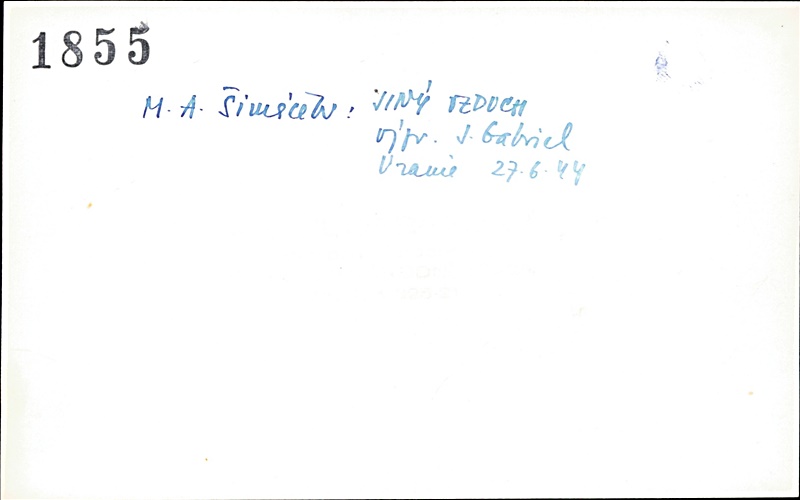 1855
M. A. Šimáček: JINÝ VZDUCH
výpr. J. Gabriel
Uranie 27.6.44